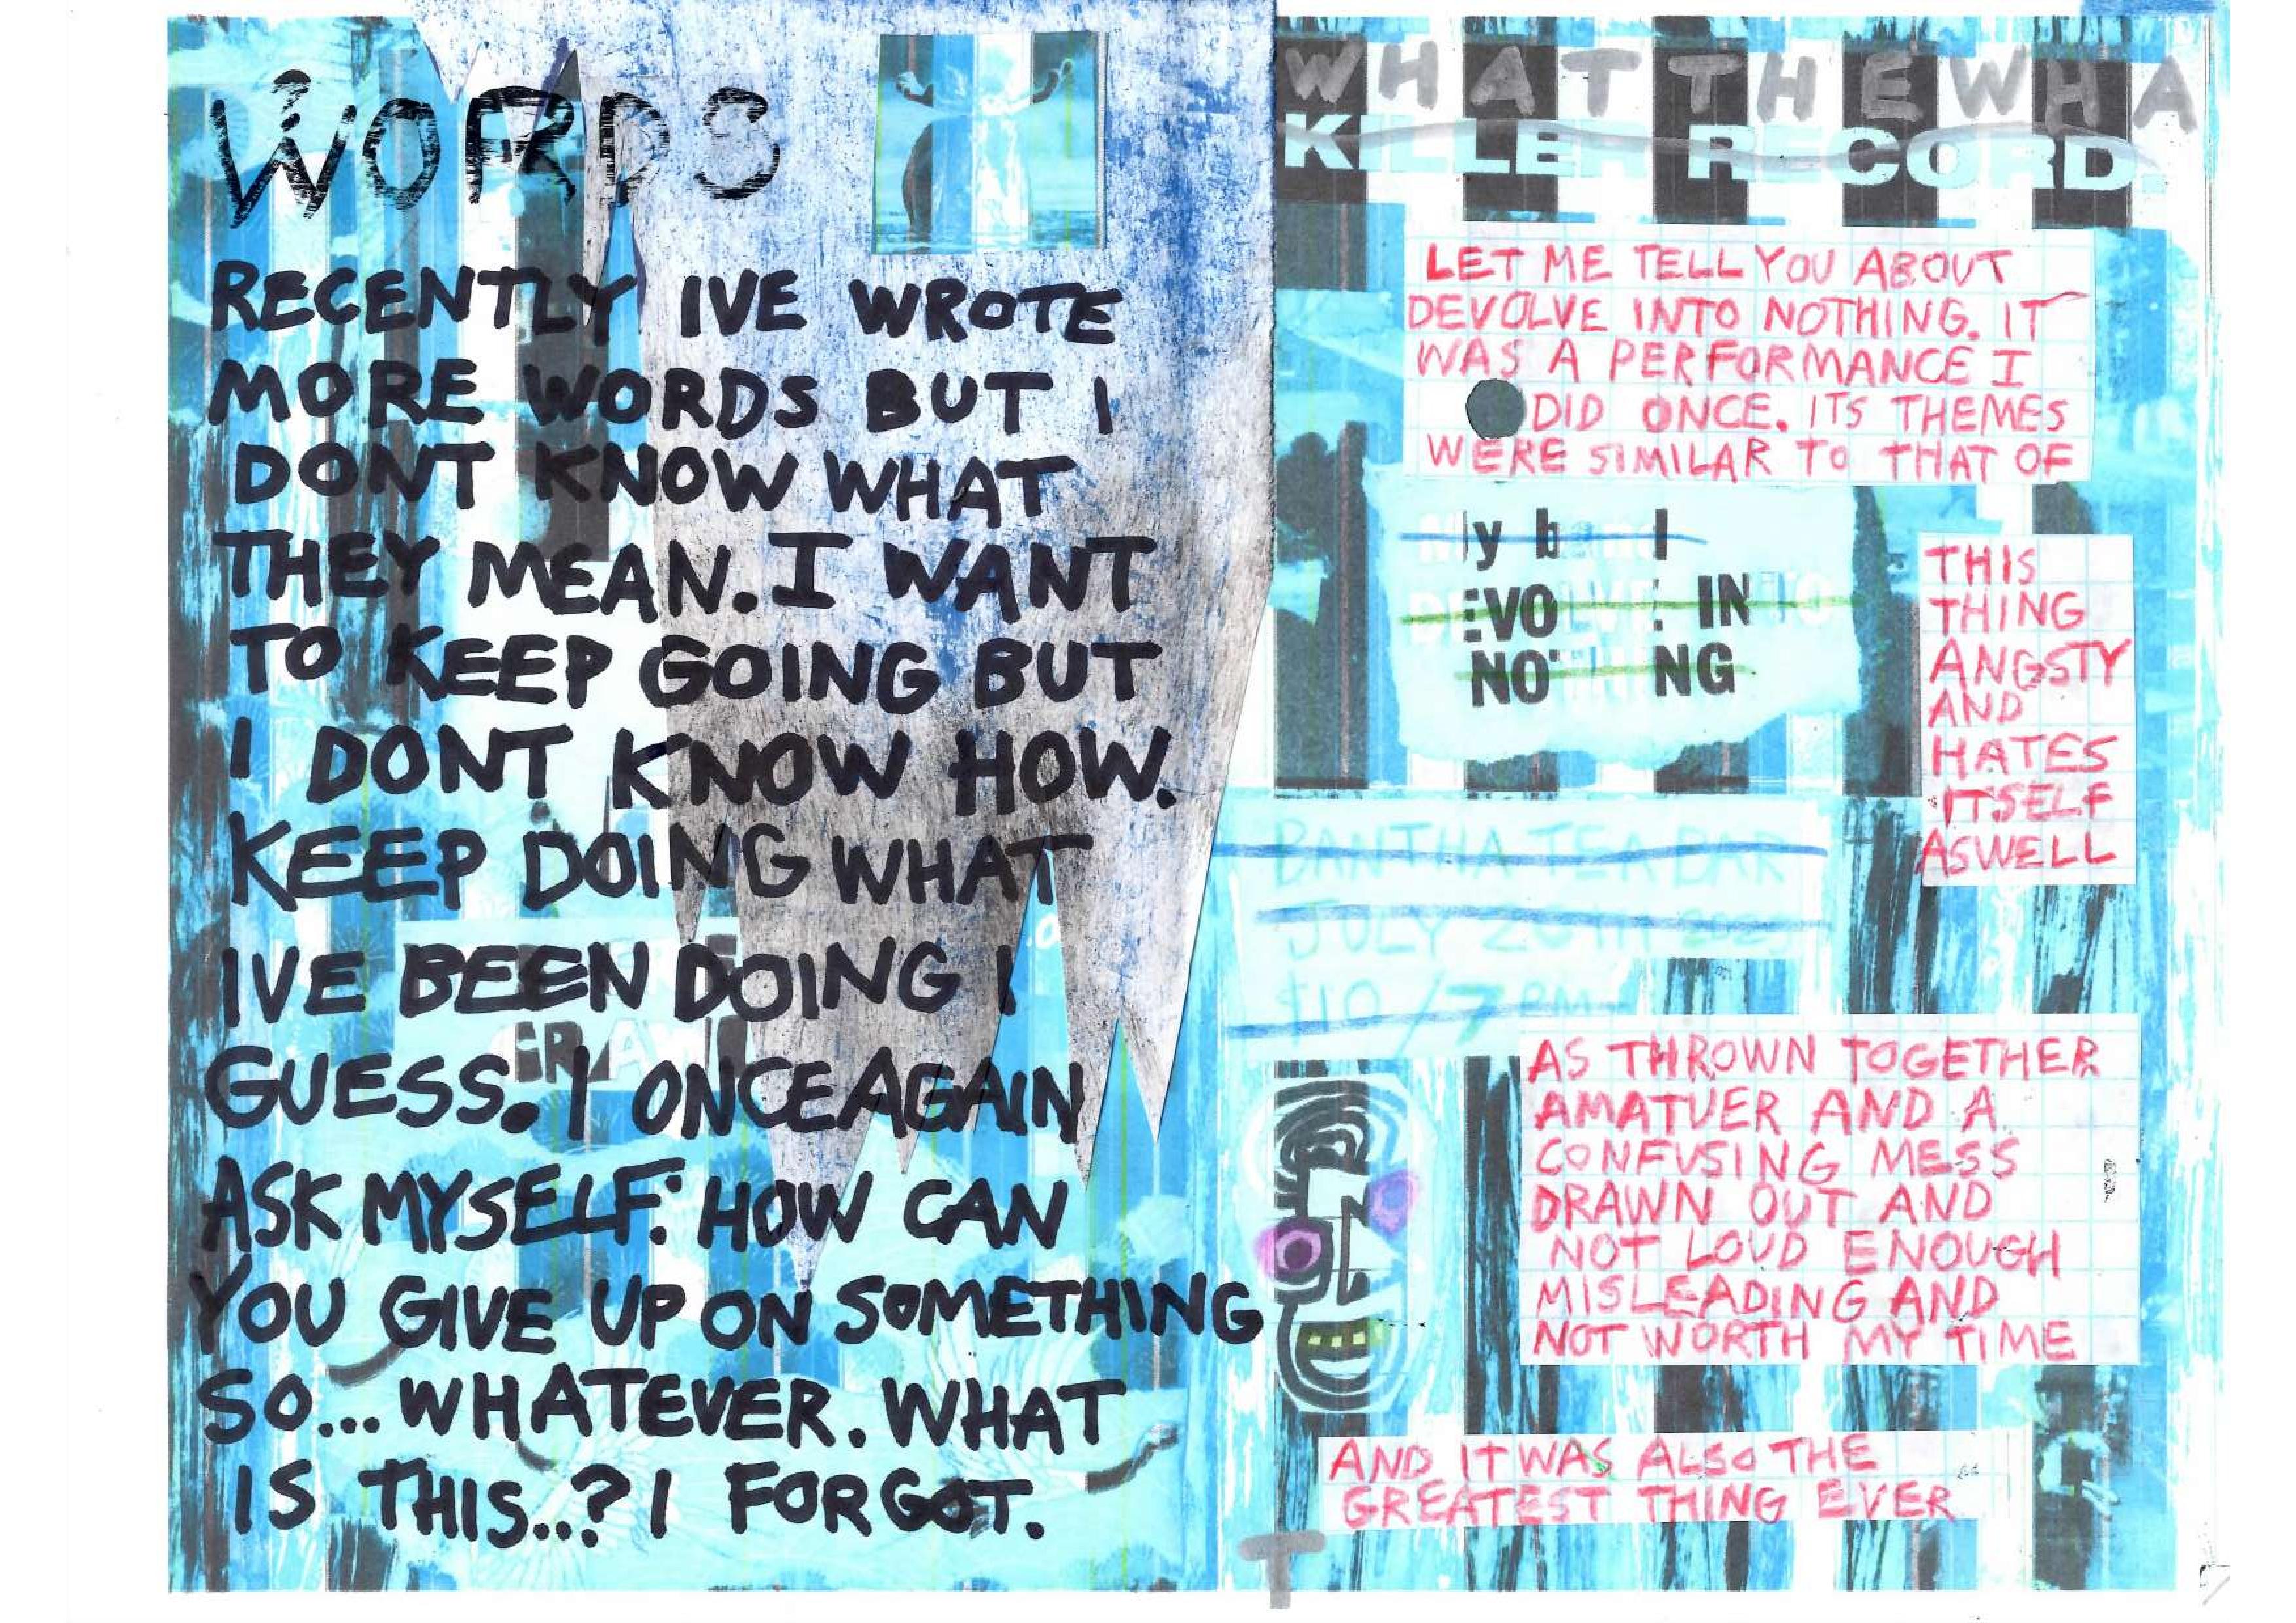 WORDS
RECENTLY IVE WROTE
MORE WORDS BUT I
DONT KNOW WHAT
THEY MEAN. I WANT
TO KEEP GOING BUT
I DONT KNOW HOW.
KEEP DOING WHAT
IVE BEEN DOING I
GUESS. I ONCEAGAIN
ASK MYSELF: HOW CAN
YOU GIVE UP ON SOMETHING
SO... WHATEVER. WHAT
IS THIS..? I FORGOT.
WHAT THE WHA
KILLER RECORD.
LET ME TELL YOU ABOUT
DEVOLVE INTO NOTHING. IT
WAS A PERFORMANCE I
DID ONCE. ITS THEMES
WERE SIMILAR TO THAT OF
My band
DEVOLVE INTO
NOTHING
THIS
THING
ANGSTY
AND
HATES
ITSELF
ASWELL
BANTHA TEA BAR
JULY
$10 / 7 PM
AS THROWN TOGETHER
AMATUER AND A
CONFUSING MESS
DRAWN OUT AND
NOT LOUD ENOUGH
MISLEADING AND
NOT WORTH MY TIME
AND IT WAS ALSO THE
GREATEST THING EVER
T